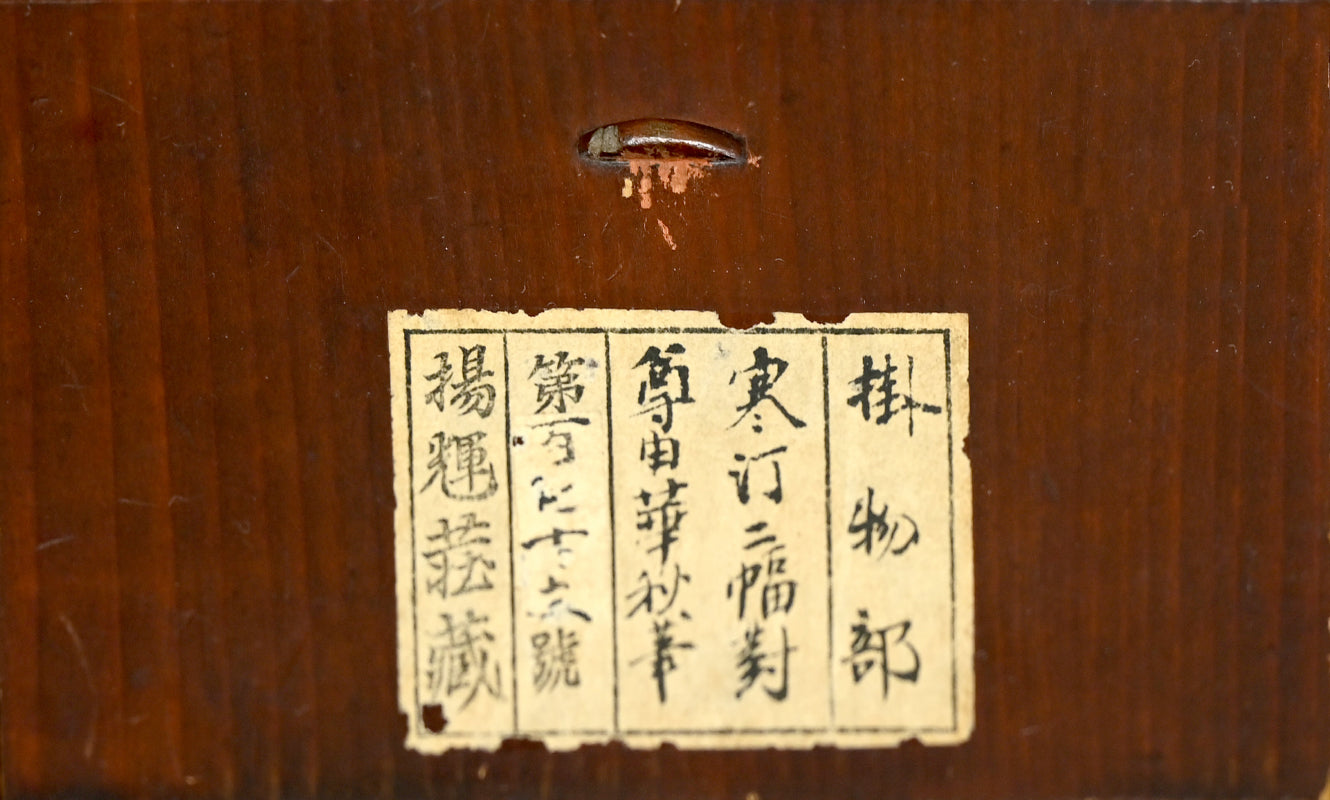 掛物部
寒汀二幅對
尊由華秋筆
第百 十 號
揚輝莊藏